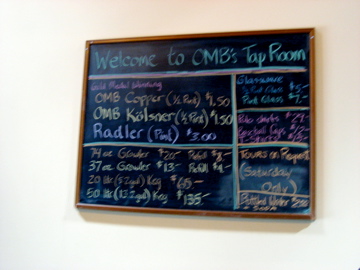 Welcome to OMB's Tap Room
Gold Medal Winning
OMB Copper (½ Pint) $1.50
OMB Kölsner (½ Pint) $1.50
Radler (Pint) $3.00
74 oz Growler $20- Refill $8-
37 oz Growler $13- Refill $4-
20 ltr (5.2 gal) Keg $65-
50 ltr (13.2 gal) Keg $135-
Glassware
½ Pint Glass $5-
Pint Glass $7-
Polo shirts $29-
Baseball Caps
T-Shirts
Tours on Request
(Saturday
Only)
Bottled Water